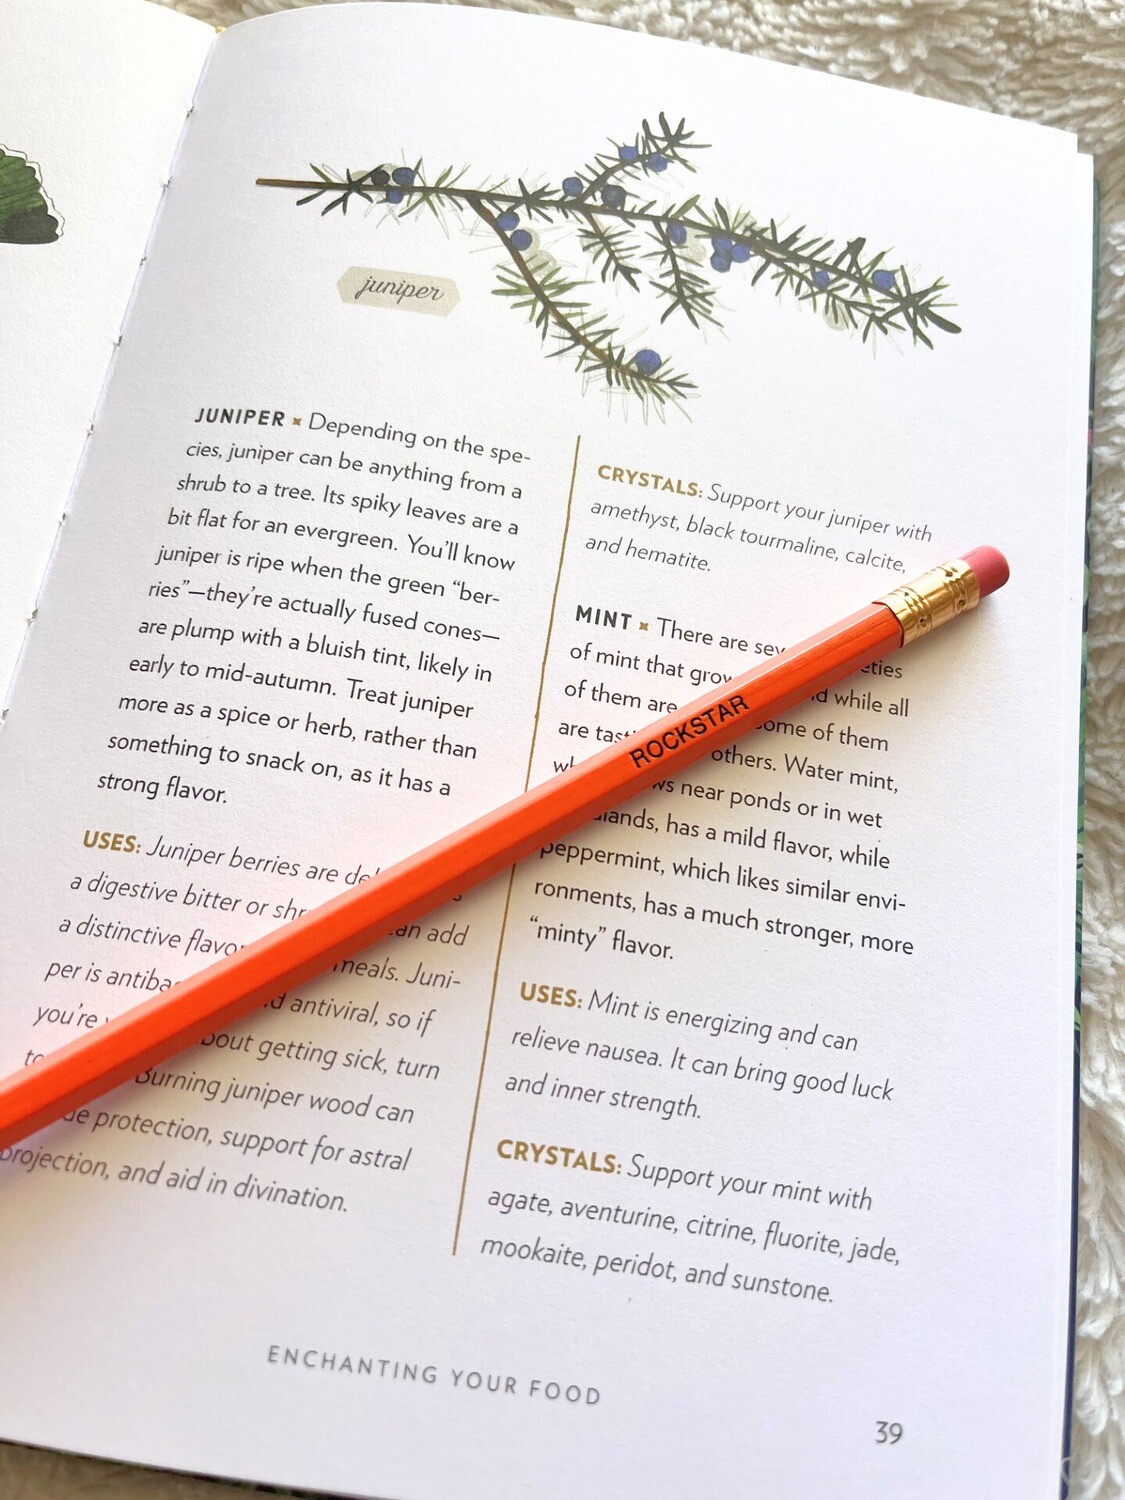 juniper
JUNIPER × Depending on the spe-
cies, juniper can be anything from a
shrub to a tree. Its spiky leaves are a
bit flat for an evergreen. You'll know
juniper is ripe when the green “ber-
ries”—they're actually fused cones—
are plump with a bluish tint, likely in
early to mid-autumn. Treat juniper
more as a spice or herb, rather than
something to snack on, as it has a
strong flavor.
USES: Juniper berries are
a digestive bitter or
a distinctive can add
per is meals. Juni-
you're antiviral, so if
getting sick, turn
Burning juniper wood can
protection, support for astral
projection, and aid in divination.
CRYSTALS: Support your juniper with
amethyst, black tourmaline, calcite,
and hematite.
MINT × There are
of mint that
of them are while all
are some of them
others. Water mint,
near ponds or in wet
has a mild flavor, while
peppermint, which likes similar envi-
ronments, has a much stronger, more
“minty” flavor.
USES: Mint is energizing and can
relieve nausea. It can bring good luck
and inner strength.
CRYSTALS: Support your mint with
agate, aventurine, citrine, fluorite, jade,
mookaite, peridot, and sunstone.
ROCKSTAR
ENCHANTING YOUR FOOD
39